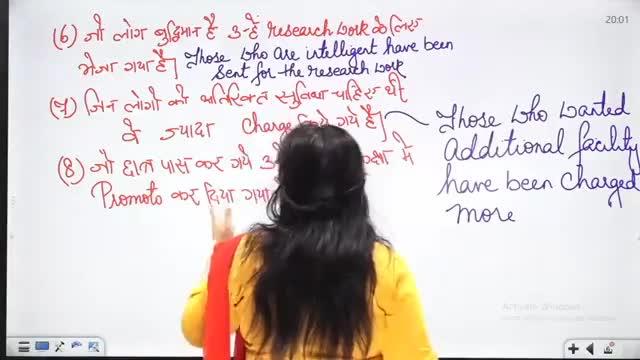 (6) जो लोग बुद्धिमान है उन्हे research work के लिए
भेजा गया है] Those who are intelligent have been
sent for the research work
(7) जिन लोगो को अतिरिक्त सुविधा चाहिए थी
वे ज्यादा Charge किये गये है]
Those who wanted
additional facility
have been charged
more
(8) जो छात्र पास कर गये मे
Promoto कर दिया गया
20:01
Activate Windows